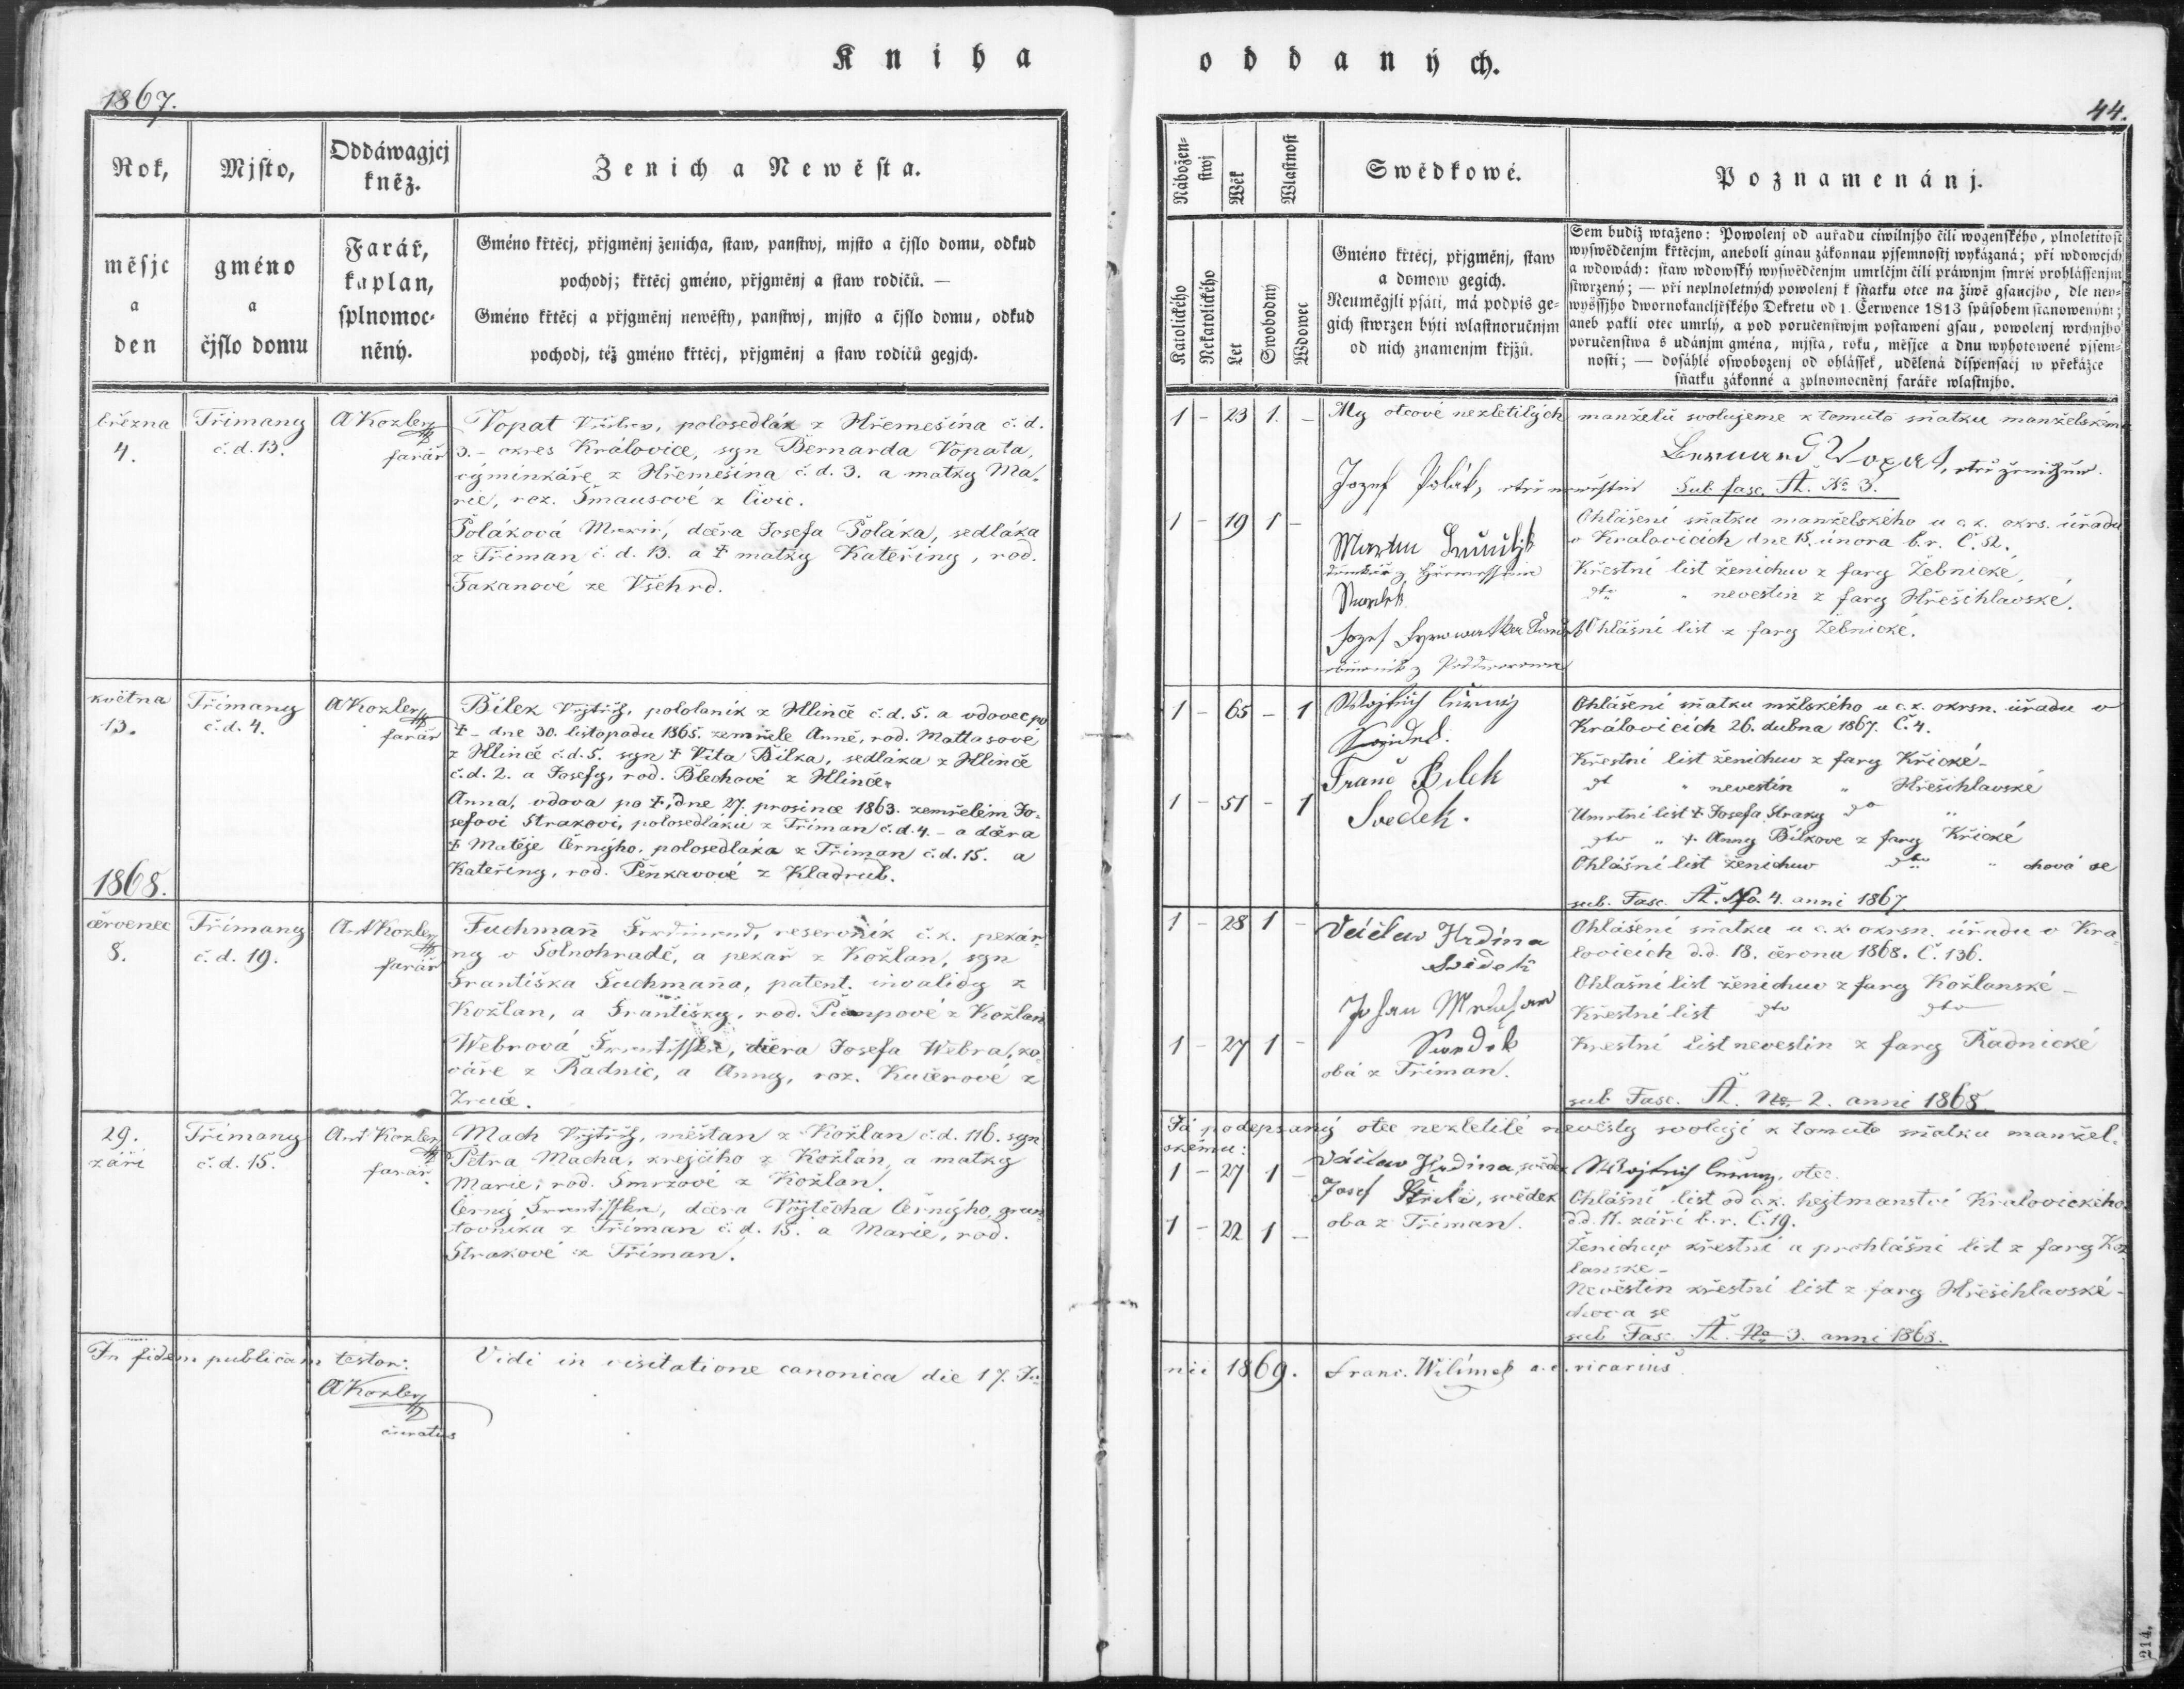 Kniha oddaných.
1867.
44.
Rok,
měsjc
a
den
Mjsto,
gméno
a
čjslo domu
Oddáwagjcj
kněz.
Farář,
kaplan,
splnomoc-
něný.
Ženich a Newěsta.
Gméno křtěcj, přjgměnj ženicha, staw, panstwj, mjsto a čjslo domu, odkud
pochodj; křtěcj gméno, přjgměnj a staw rodičů. —
Gméno křtěcj a přjgměnj newěsty, panstwj, mjsto a čjslo domu, odkud
pochodj, též gméno křtěcj, přjgměnj a staw rodičů gegjch.
Nábožen-
stwj
Katolického
Nekatolického
Wěk
Let
Wlastnost
Swobodný
Wdowec
Swědkowé.
Gméno křtěcj, přjgměnj, staw
a domow gegich.
Neumějgli psáti, má podpis ge-
gich stwrzen býti wlastnoručnjm
od nich znamenjm křjžů.
Poznamenánj.
Sem budiž wtaženo: Powolenj od auřadu ciwilnjho čili wogenského, plnoletitost
wyswědčenjm křtěcjm, aneboli ginau zákonnau pjsemnostj wykázaná; při wdowcjch
a wdowách: staw wdowský wyswědčenjm umrlčjm čili práwnjm smrti prohlássenjm
stwrzený; — při neplnoletných powolenj k sňatku otce na žiwě gsaucjho, dle ney-
wyšssjho dwornokancljřského Dekretu od 1. Čerwence 1813 spůsobem stanoweným;
aneb pakli otec umrlý, a pod poručenstwjm postaweni gsau, powolenj wrchnjho
poručenstwa s udánjm gména, mjsta, roku, měsjce a dnu wyhotowené pjsem-
nosti; — dosáhlé oswobozenj od ohlássek, udělená dispensacj w překážce
sňatku zákonné a zplnomocněnj faráře wlastnjho.
března
4.
Třimany
č. d. 13.
AKozler
farář
Vopat polosedlák z Hřemešína č. d.
3. – okres Královice, syn Bernarda Vopata,
výminkáře z Hřemešína č. d. 3. a matky Ma-
rie, roz. Šmausové z Čivic.
Poláková Marie, dcera Josefa Poláka, sedláka
z Třiman č. d. 13. a † matky Kateřiny, rod.
Fakanové ze Všehrd.
1 – 23 1. –
1 – 19 1 –
My otcové nezletilých manželů svolujeme k tomuto sňatku manželskému
Bernard Vopat, otec ženichův.
Jozef Polák, otec nevěstin Sub fasc. Ať. No 3.
Martin
Svědek
Jozef
Ohlášení sňatku manželského u c. k. okrs. úřadu
v Kralovicích dne 15. února b. r. Č. 52.
Křestní list ženichuv z fary Žebnické,
dto „ nevestin z fary Hřešihlavské.
Ohlášní list z fary Žebnické.
května
13.
Třimany
č. d. 4.
AKozler
farář
Bílek Vojtěch, pololaník z Hlinče č. d. 5. a vdovec po
† – dne 30. listopadu 1865. zemřele Anně, rod. Mattasové
z Hlinče č. d. 5. syn † Víta Bílka, sedláka z Hlinče
č. d. 2. a Josefy, rod. Blechové z Hlinče.
Anna, vdova po †, dne 27. prosince 1863. zemřelém Jo-
sefovi Strakovi, polosedláků z Třiman č. d. 4. – a dcera
† Matěje Černýho, polosedláka z Třiman č. d. 15. a
Kateřiny, rod. Pěnkavové z Kladrub.
1 – 65 – 1
1 – 51 – 1
Wojtěch Černý
Svědek.
Franc Bilek
Svedek.
Ohlášení sňatku mžlského u c. k. okrsn. úřadu v
Královicích 26. dubna 1867. Č. 4.
Křestní list ženichuv z fary Křické –
dt „ nevestin „ Hřešihlavské
Umrtní list † Josefa Straky dto „
dto „ †. Anny Bílkove z fary Křické
Ohlášní list ženichuv dto „ chová se
sub. Fasc. Ať. No. 4. anni 1867.
1868.
červenec
8.
Třimany
č. d. 19.
Ant Kozler
farář
Fuchmañ Ferdinand, reservník c. k. pekár-
ny v Solnohradě, a pekař z Kožlan, syn
Františka Fuchmaña, patent. invalidy z
Kožlan, a Františky, rod. Pumpové z Kožlan
Webrová Františka, dcera Josefa Webra, ko-
váře z Radnic, a Anny, roz. Kučerové z
Zruče.
1 – 28 1 –
1 – 27 1 –
Václav Hrdina
Svědek
Johan
Svedek
oba z Třiman.
Ohlášení sňatku u c. k. okrsn. úřadu v Kra-
lovicích d. d. 18. června 1868. Č. 136.
Ohlašní list ženichuv z fary Kožlanské –
Křestní list dto dto
Krestní list nevestin z fary Radnické
sub Fasc. Ať. No 2. anni 1868
29.
září
Třimany
č. d. 15.
Ant Kozler
farář.
Mach Vojtěch, měšťan z Kožlan č. d. 116. syn
Petra Macha, krejčího z Kožlan, a matky
Marie, rod. Smržové z Kožlan.
Černý Františka, dcera Vojtěcha Černýho, grun-
tovníka z Třiman č. d. 15. a Marie, rod.
Strakové z Třiman.
Já podepsaný otec nezletilé nevěsty svoluji k tomuto sňatku manžel-
skému:
1 – 27 1 –
1 – 22 1 –
Václav Hrdina, svědek Wojtěch Černý, otec.
Josef svědek
oba z Třiman.
Ohlášní list od c. k. hejtmanství Kralovického
d. d. 11. září b. r. Č. 19.
Ženichuv křestní a prohlášní list z fary Kož-
lanské –
Nevěstin křestní list z fary Hřešihlavské –
chova se
sub Fasc. Ať. No 3. anni 1868.
In fidem publicam testor:
AKozler
curatus
Vidi in visitatione canonica die 17. Ju-
nii 1869. Franc. Wilímek a. e. vicarius
214.